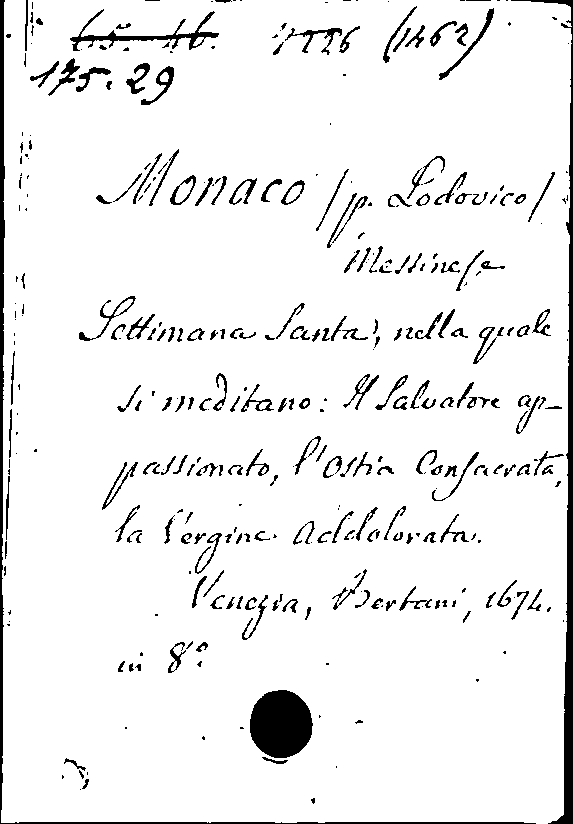 65. 46. 1226 (1462)
175.29
Monaco /p. Lodovico/
Messinese
Settimana Santa, nella quale
si meditano: Il Salvatore ap-
passionato, l'Ostia Consacrata,
la Vergine Addolorata.
Venezia, Bertani, 1674.
in 8°